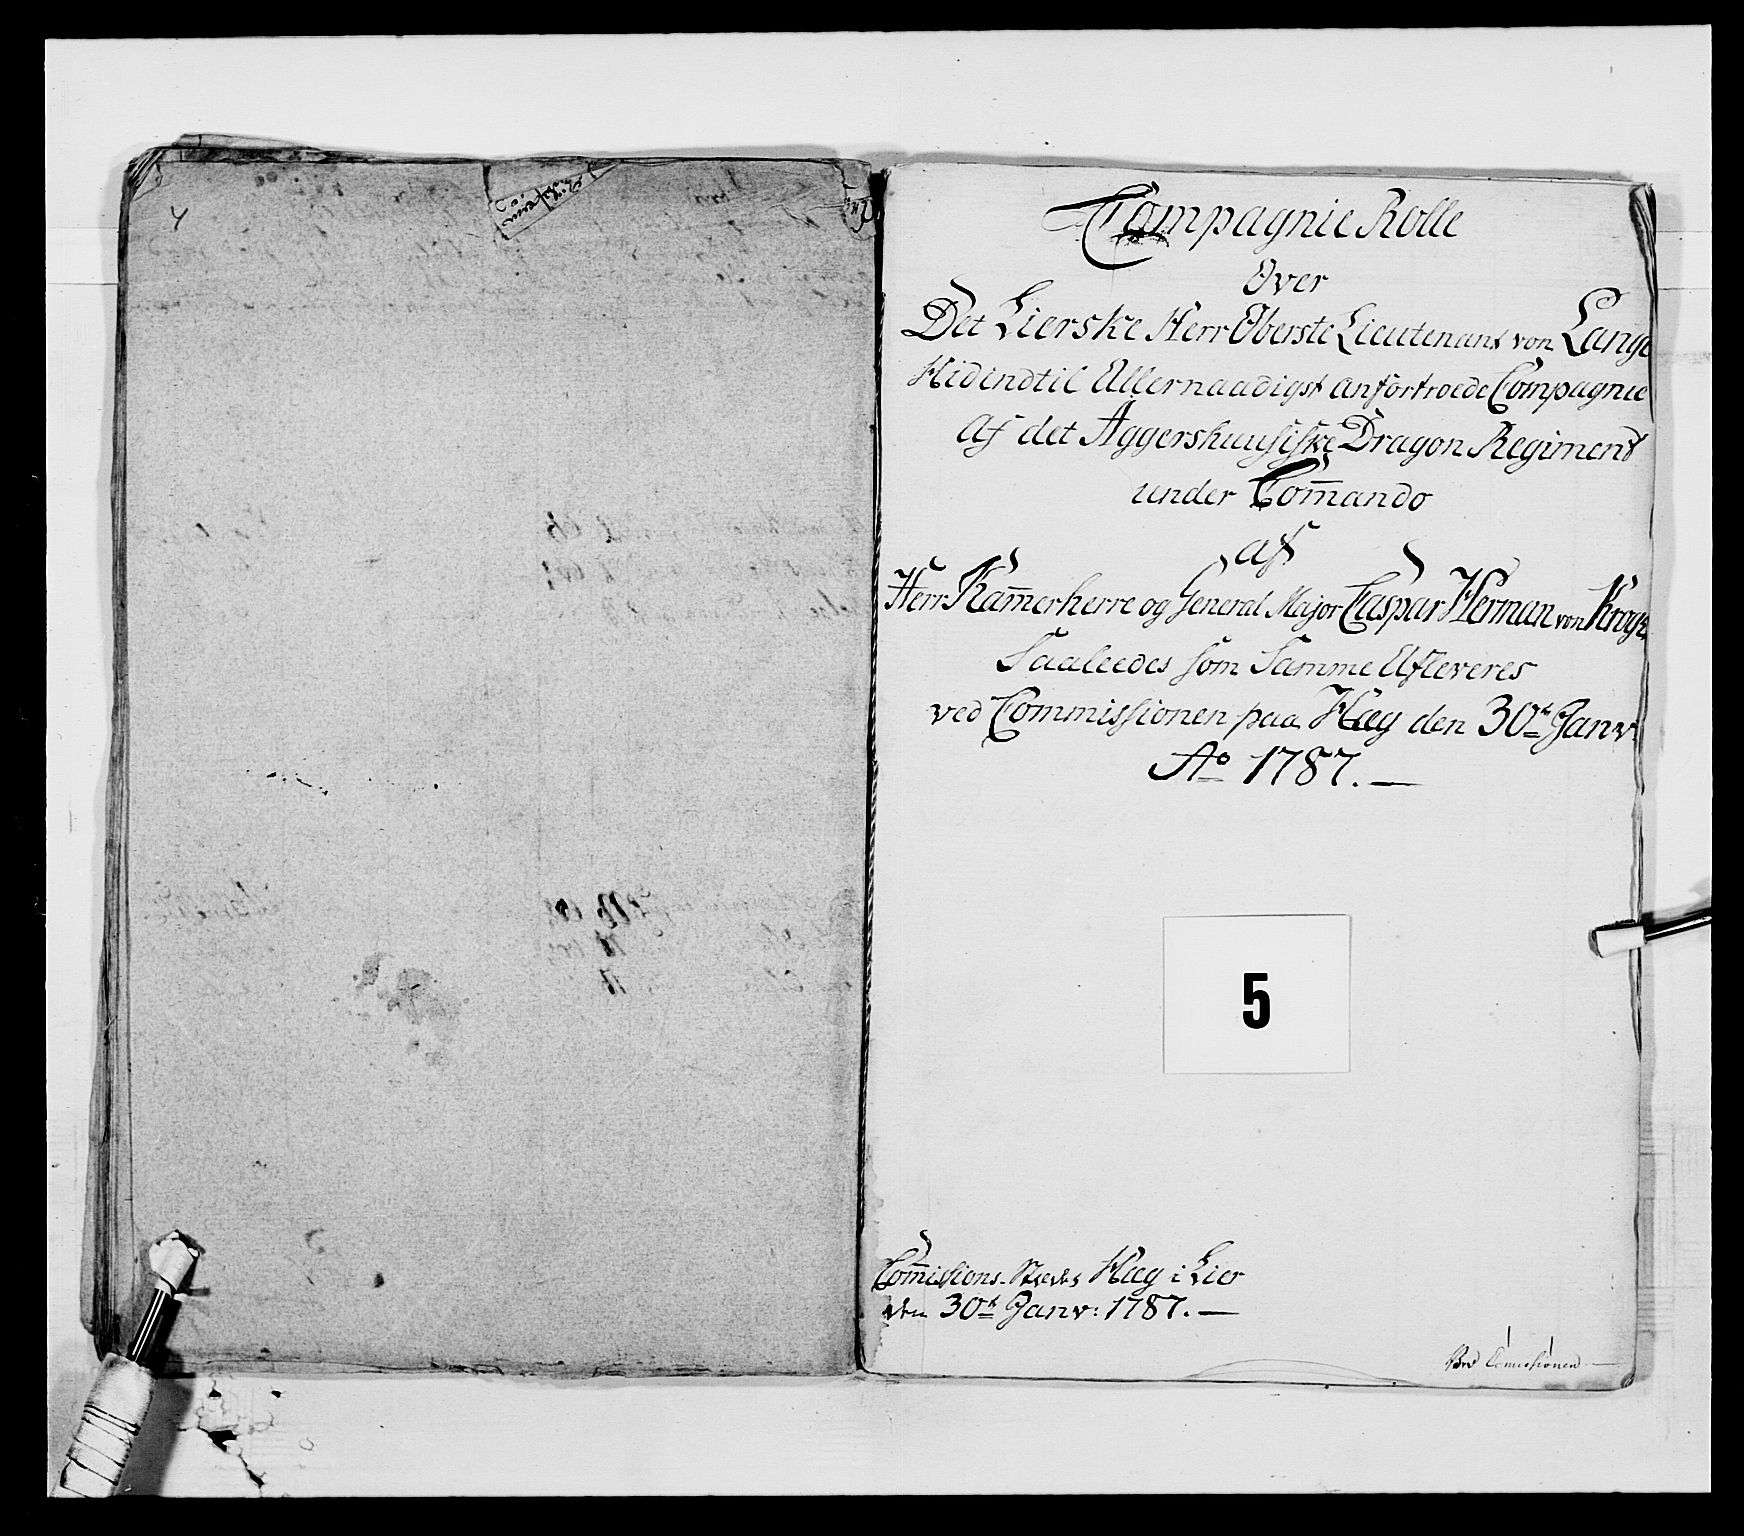 Compagnie Rolle
Over
Det Lierske Herr Oberste Lieutenant von Lange
Hidindtil Allernaadigst anfortroede Compagnie
Af det Aggershuusiske Dragon Regiment
under Com̅ando
af
Herr Kam̅erherre og General Major Caspar Herman von Krogh
Saaleedes som Samme Afleveres
ved Commissionen paa Hæg den 30te Janv:
Ao 1787. —
5
Com̅issions-Stædet Hæg i Lier
den 30te Janv: 1787. —
Ved Commissionen —